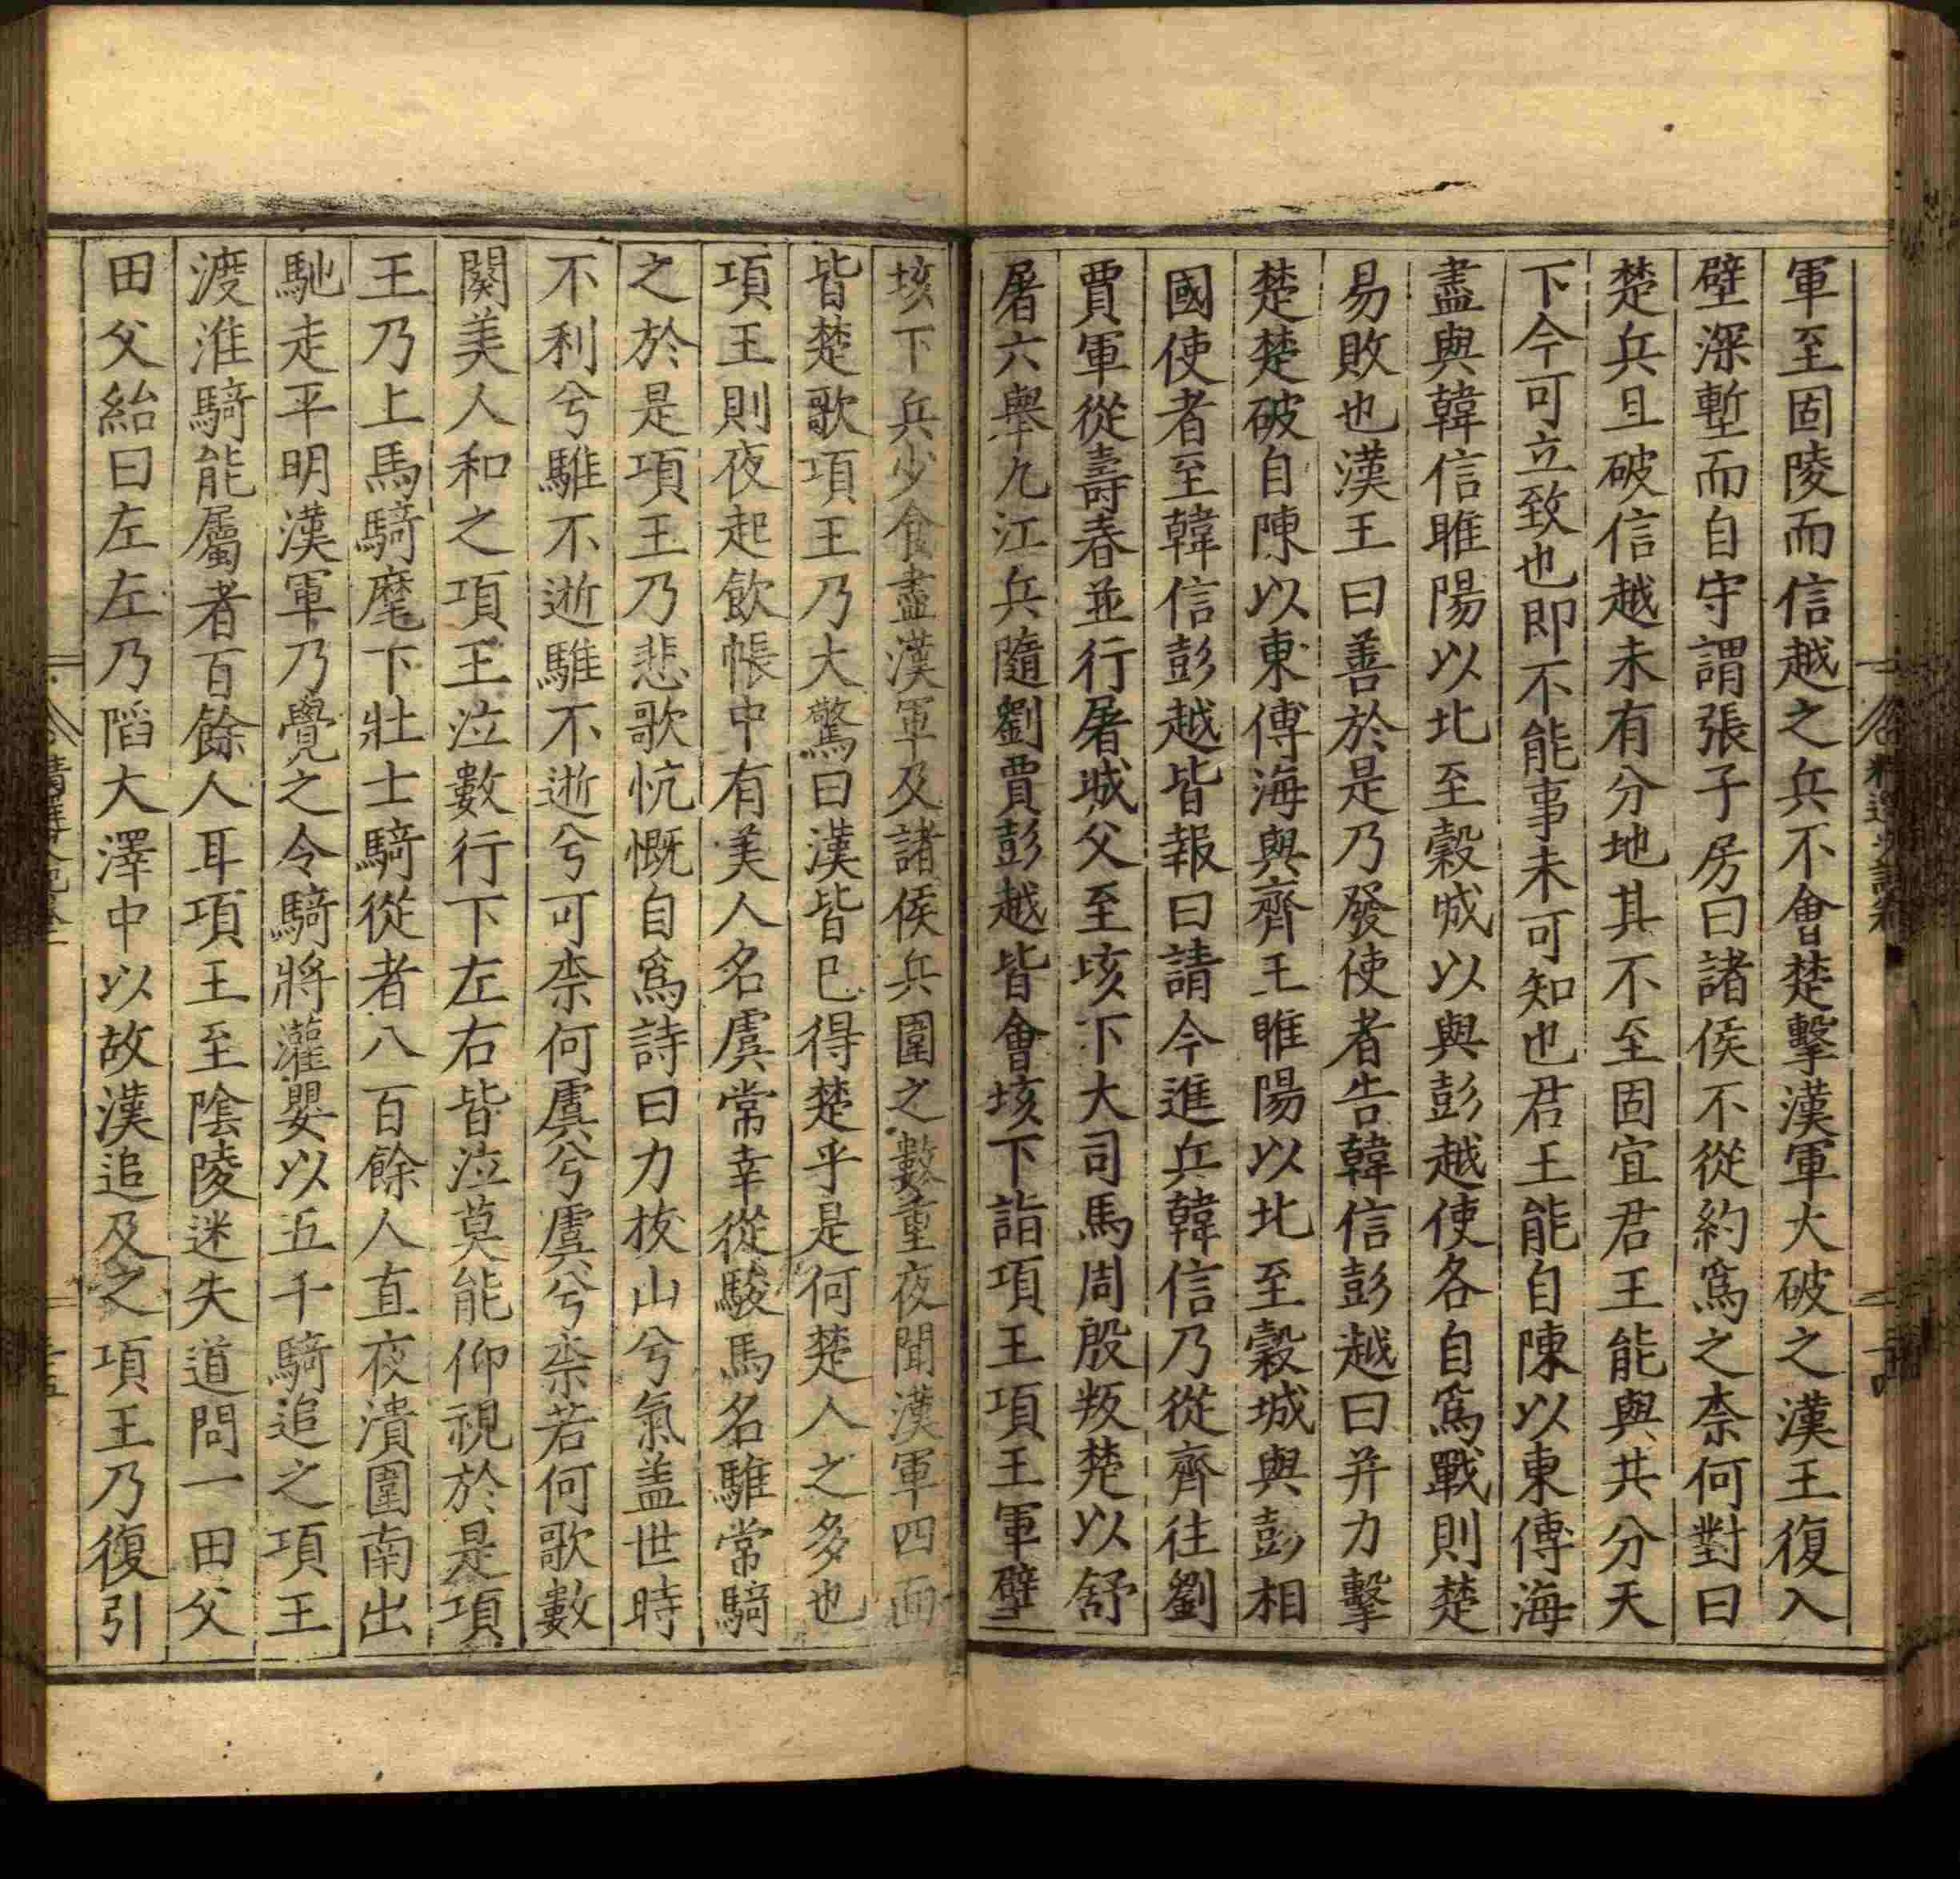 軍至固陵而信越之兵不會楚擊漢軍大破之漢王復入
壁深塹而自守謂張子房曰諸侯不從約爲之柰何對曰
楚兵且破信越未有分地其不至固宜君王能與共分天
下今可立致也即不能事未可知也君王能自陳以東傅海
盡與韓信睢陽以北至穀城以與彭越使各自爲戰則楚
易敗也漢王曰善於是乃發使者告韓信彭越曰并力擊
楚楚破自陳以東傅海與齊王睢陽以北至穀城與彭相
國使者至韓信彭越皆報曰請今進兵韓信乃從齊往劉
賈軍從壽春並行屠城父至垓下大司馬周殷叛楚以舒
屠六舉九江兵隨劉賈彭越皆會垓下詣項王項王軍壁
垓下兵少食盡漢軍及諸侯兵圍之數重夜聞漢軍四面
皆楚歌項王乃大驚曰漢皆已得楚乎是何楚人之多也
項王則夜起飲帳中有美人名虞常幸從駿馬名騅常騎
之於是項王乃悲歌忼慨自爲詩曰力拔山兮氣盖世時
不利兮騅不逝騅不逝兮可柰何虞兮虞兮柰若何歌數
闋美人和之項王泣數行下左右皆泣莫能仰視於是項
王乃上馬騎麾下壯士騎從者八百餘人直夜潰圍南出
馳走平明漢軍乃覺之令騎將灌嬰以五千騎追之項王
渡淮騎能屬者百餘人耳項王至陰陵迷失道問一田父
田父紿曰左左乃陷大澤中以故漢追及之項王乃復引